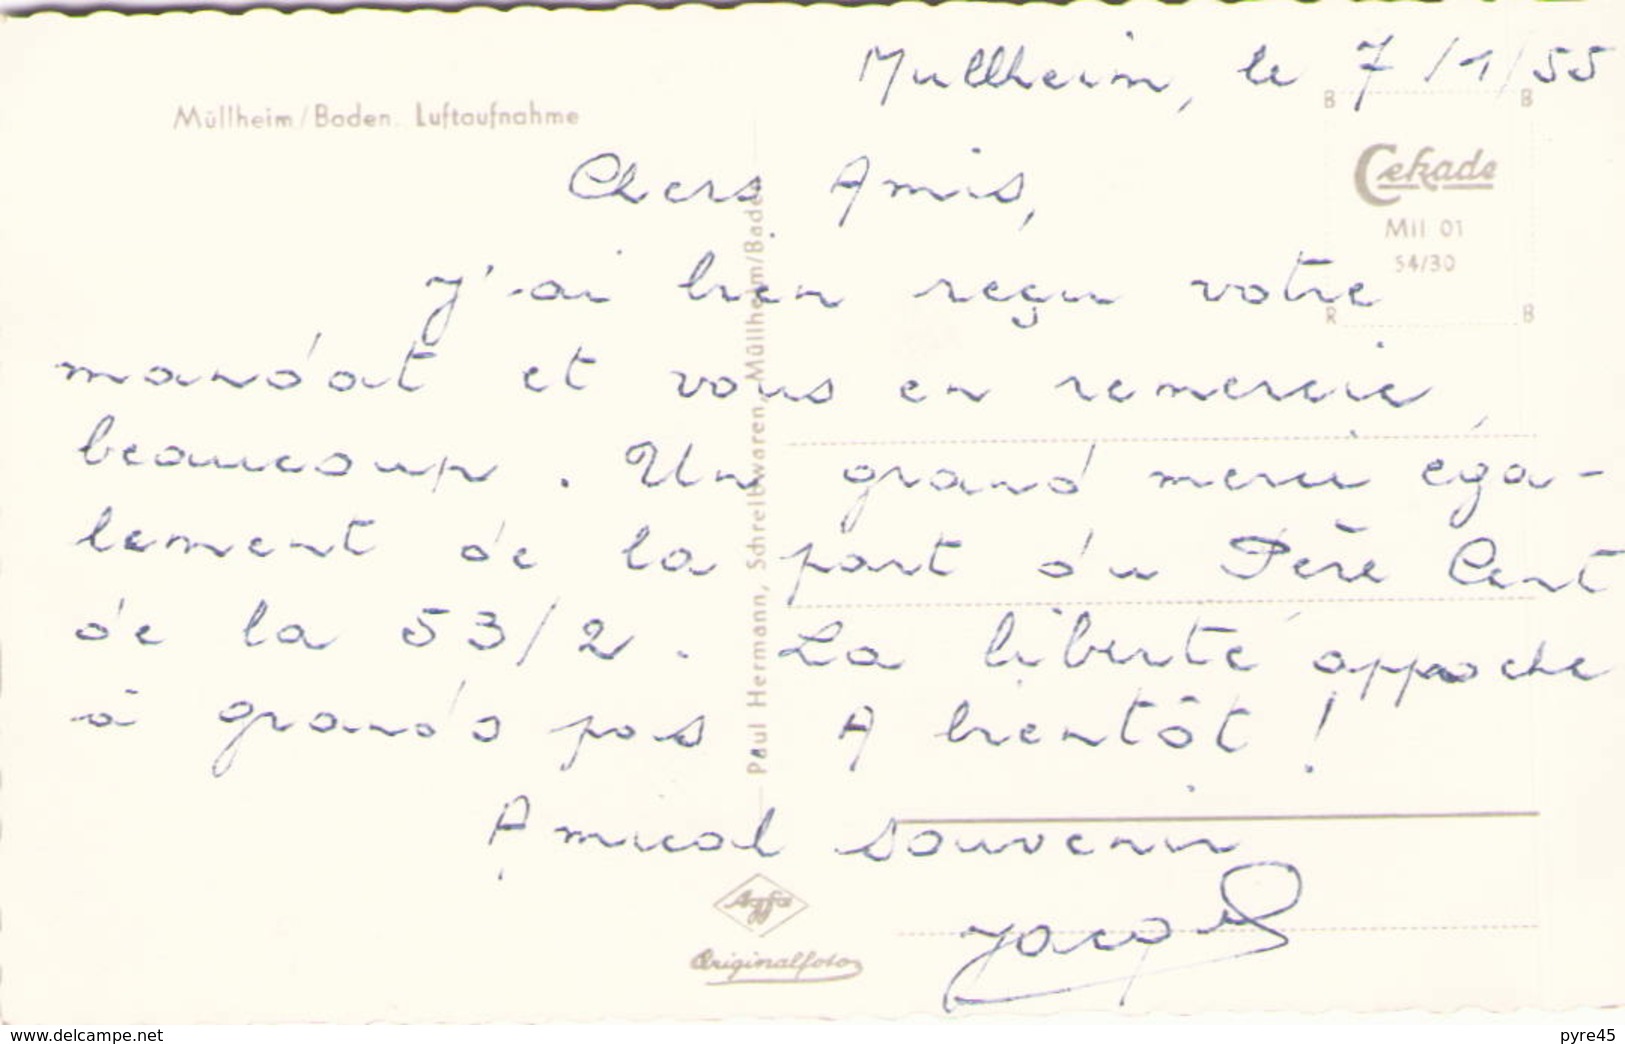 Mullheim, le 7/1/55
Müllheim/Baden. Luftaufnahme
Cekade
Mil 01
54/30
B B
R B
Chers Amis,
J'ai bien reçu votre
mandat et vous en remercie
beaucoup. Un grand merci éga-
lement de la part du Père Cent
de la 53/2. La liberté approche
à grands pas A bientôt !
Amical souvenir
Jacques
Paul Hermann, Schreibwaren, Müllheim/Baden
Agfa
Originalfoto
www.delcampe.net
pyre45